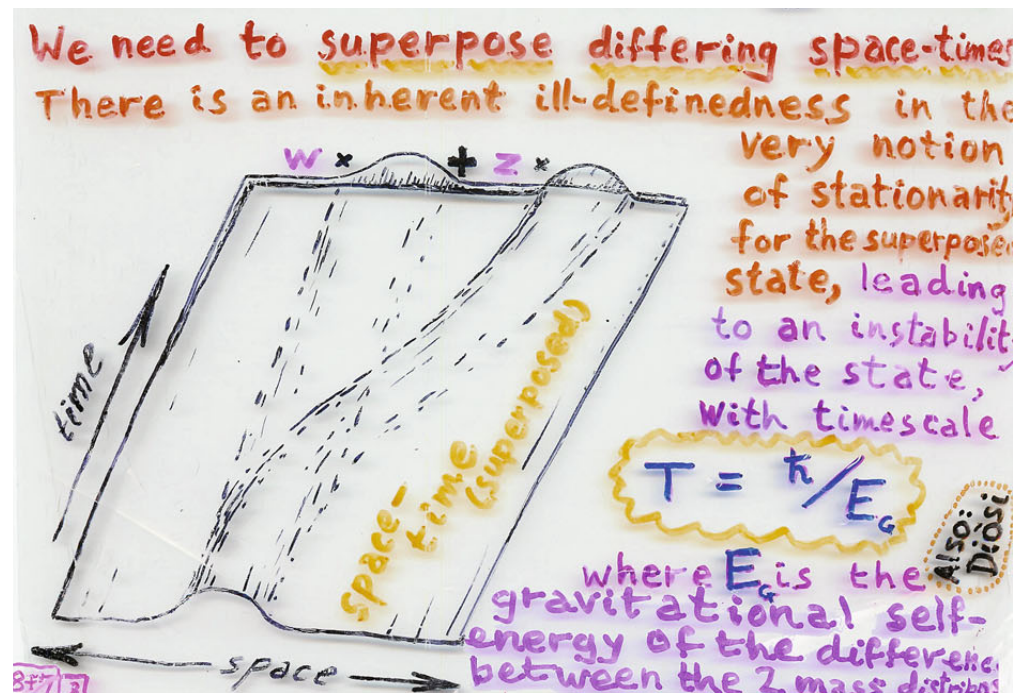 We need to superpose differing space-times
There is an inherent ill-definedness in the
very notion
of stationarity
for the superposed
state, leading
to an instability
of the state,
with timescale
T = ħ/E_G
Also:
Diósi
where E_G is the
gravitational self-
energy of the difference
between the 2 mass distribns
w × + z ×
time
space-
time
(superposed)
space